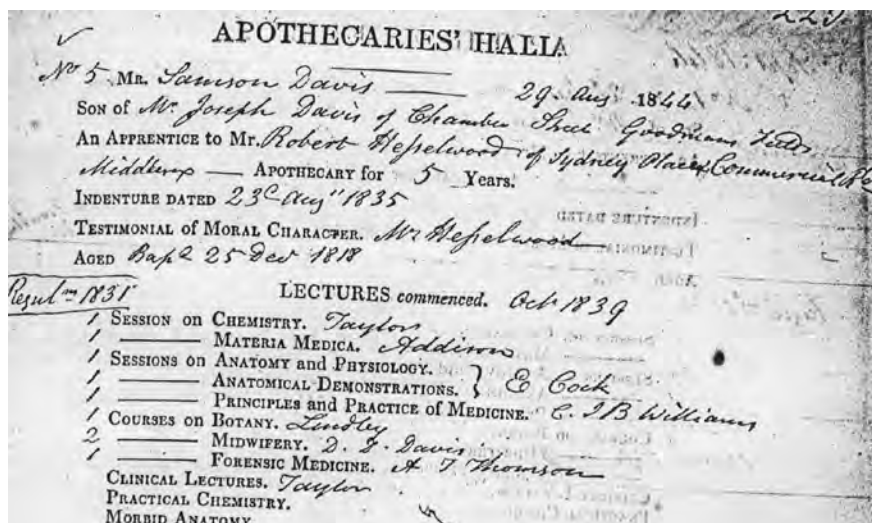 223.
APOTHECARIES' HALL
✓
No 5 MR. Samson Davis 29 Aug 1844
SON OF Mr Joseph Davis of Chamber Street Goodmans Fields
AN APPRENTICE to MR. Robert Hesselwood of Sydney Place Commercial Rd
Middlesex — APOTHECARY for 5 Years.
INDENTURE DATED 23d Augt 1835
TESTIMONIAL OF MORAL CHARACTER. Mr Hesselwood
AGED Bapd 25 Dec 1818
Reguln 1831
LECTURES commenced. Oct 1839
1 SESSION on CHEMISTRY. Taylor
1 —— MATERIA MEDICA. Addison
1 SESSIONS on ANATOMY and PHYSIOLOGY. } E Cock
1 —— ANATOMICAL DEMONSTRATIONS.
1 —— PRINCIPLES and PRACTICE of MEDICINE. C. J B Williams
1 COURSES on BOTANY. Lindley
2 —— MIDWIFERY. D. D. Davis
1 —— FORENSIC MEDICINE. A T Thomson
CLINICAL LECTURES. Taylor
PRACTICAL CHEMISTRY.
MORBID ANATOMY